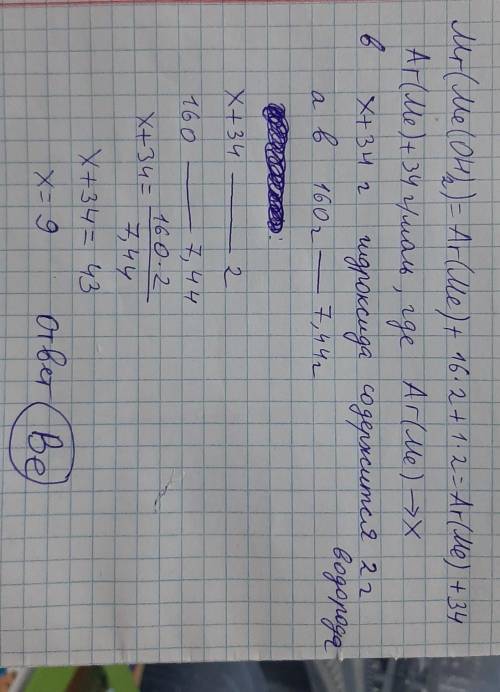 Mr(Me(OH₂)=Ar(Me)+16·2+1·2=Ar(Me)+34
Ar(Me)+34 г/моль, где Ar(Me)→X
в X+34 г гидроксида содержится 2 г водорода
а в 160 г — 7,44 г
X+34 — 2
160 — 7,44
X+34 = 160·2 / 7,44
X+34 = 43
X = 9
Ответ Be